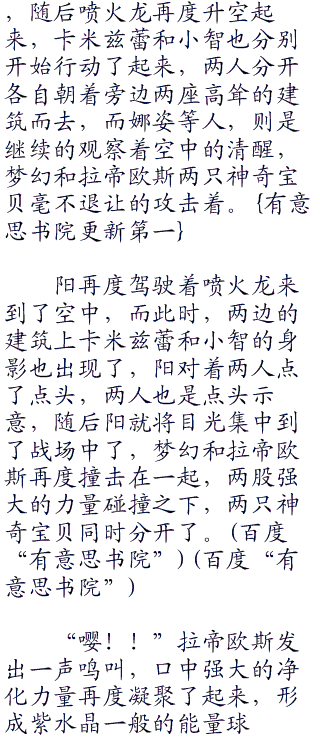 ，随后喷火龙再度升空起
来，卡米兹蕾和小智也分别
开始行动了起来，两人分开
各自朝着旁边两座高耸的建
筑而去，而娜姿等人，则是
继续的观察着空中的清醒，
梦幻和拉帝欧斯两只神奇宝
贝毫不退让的攻击着。{有意
思书院更新第一}
阳再度驾驶着喷火龙来
到了空中，而此时，两边的
建筑上卡米兹蕾和小智的身
影也出现了，阳对着两人点
了点头，两人也是点头示
意，随后阳就将目光集中到
了战场中了，梦幻和拉帝欧
斯再度撞击在一起，两股强
大的力量碰撞之下，两只神
奇宝贝同时分开了。(百度
“有意思书院”)(百度“有
意思书院”)
“嘤！！”拉帝欧斯发
出一声鸣叫，口中强大的净
化力量再度凝聚了起来，形
成紫水晶一般的能量球